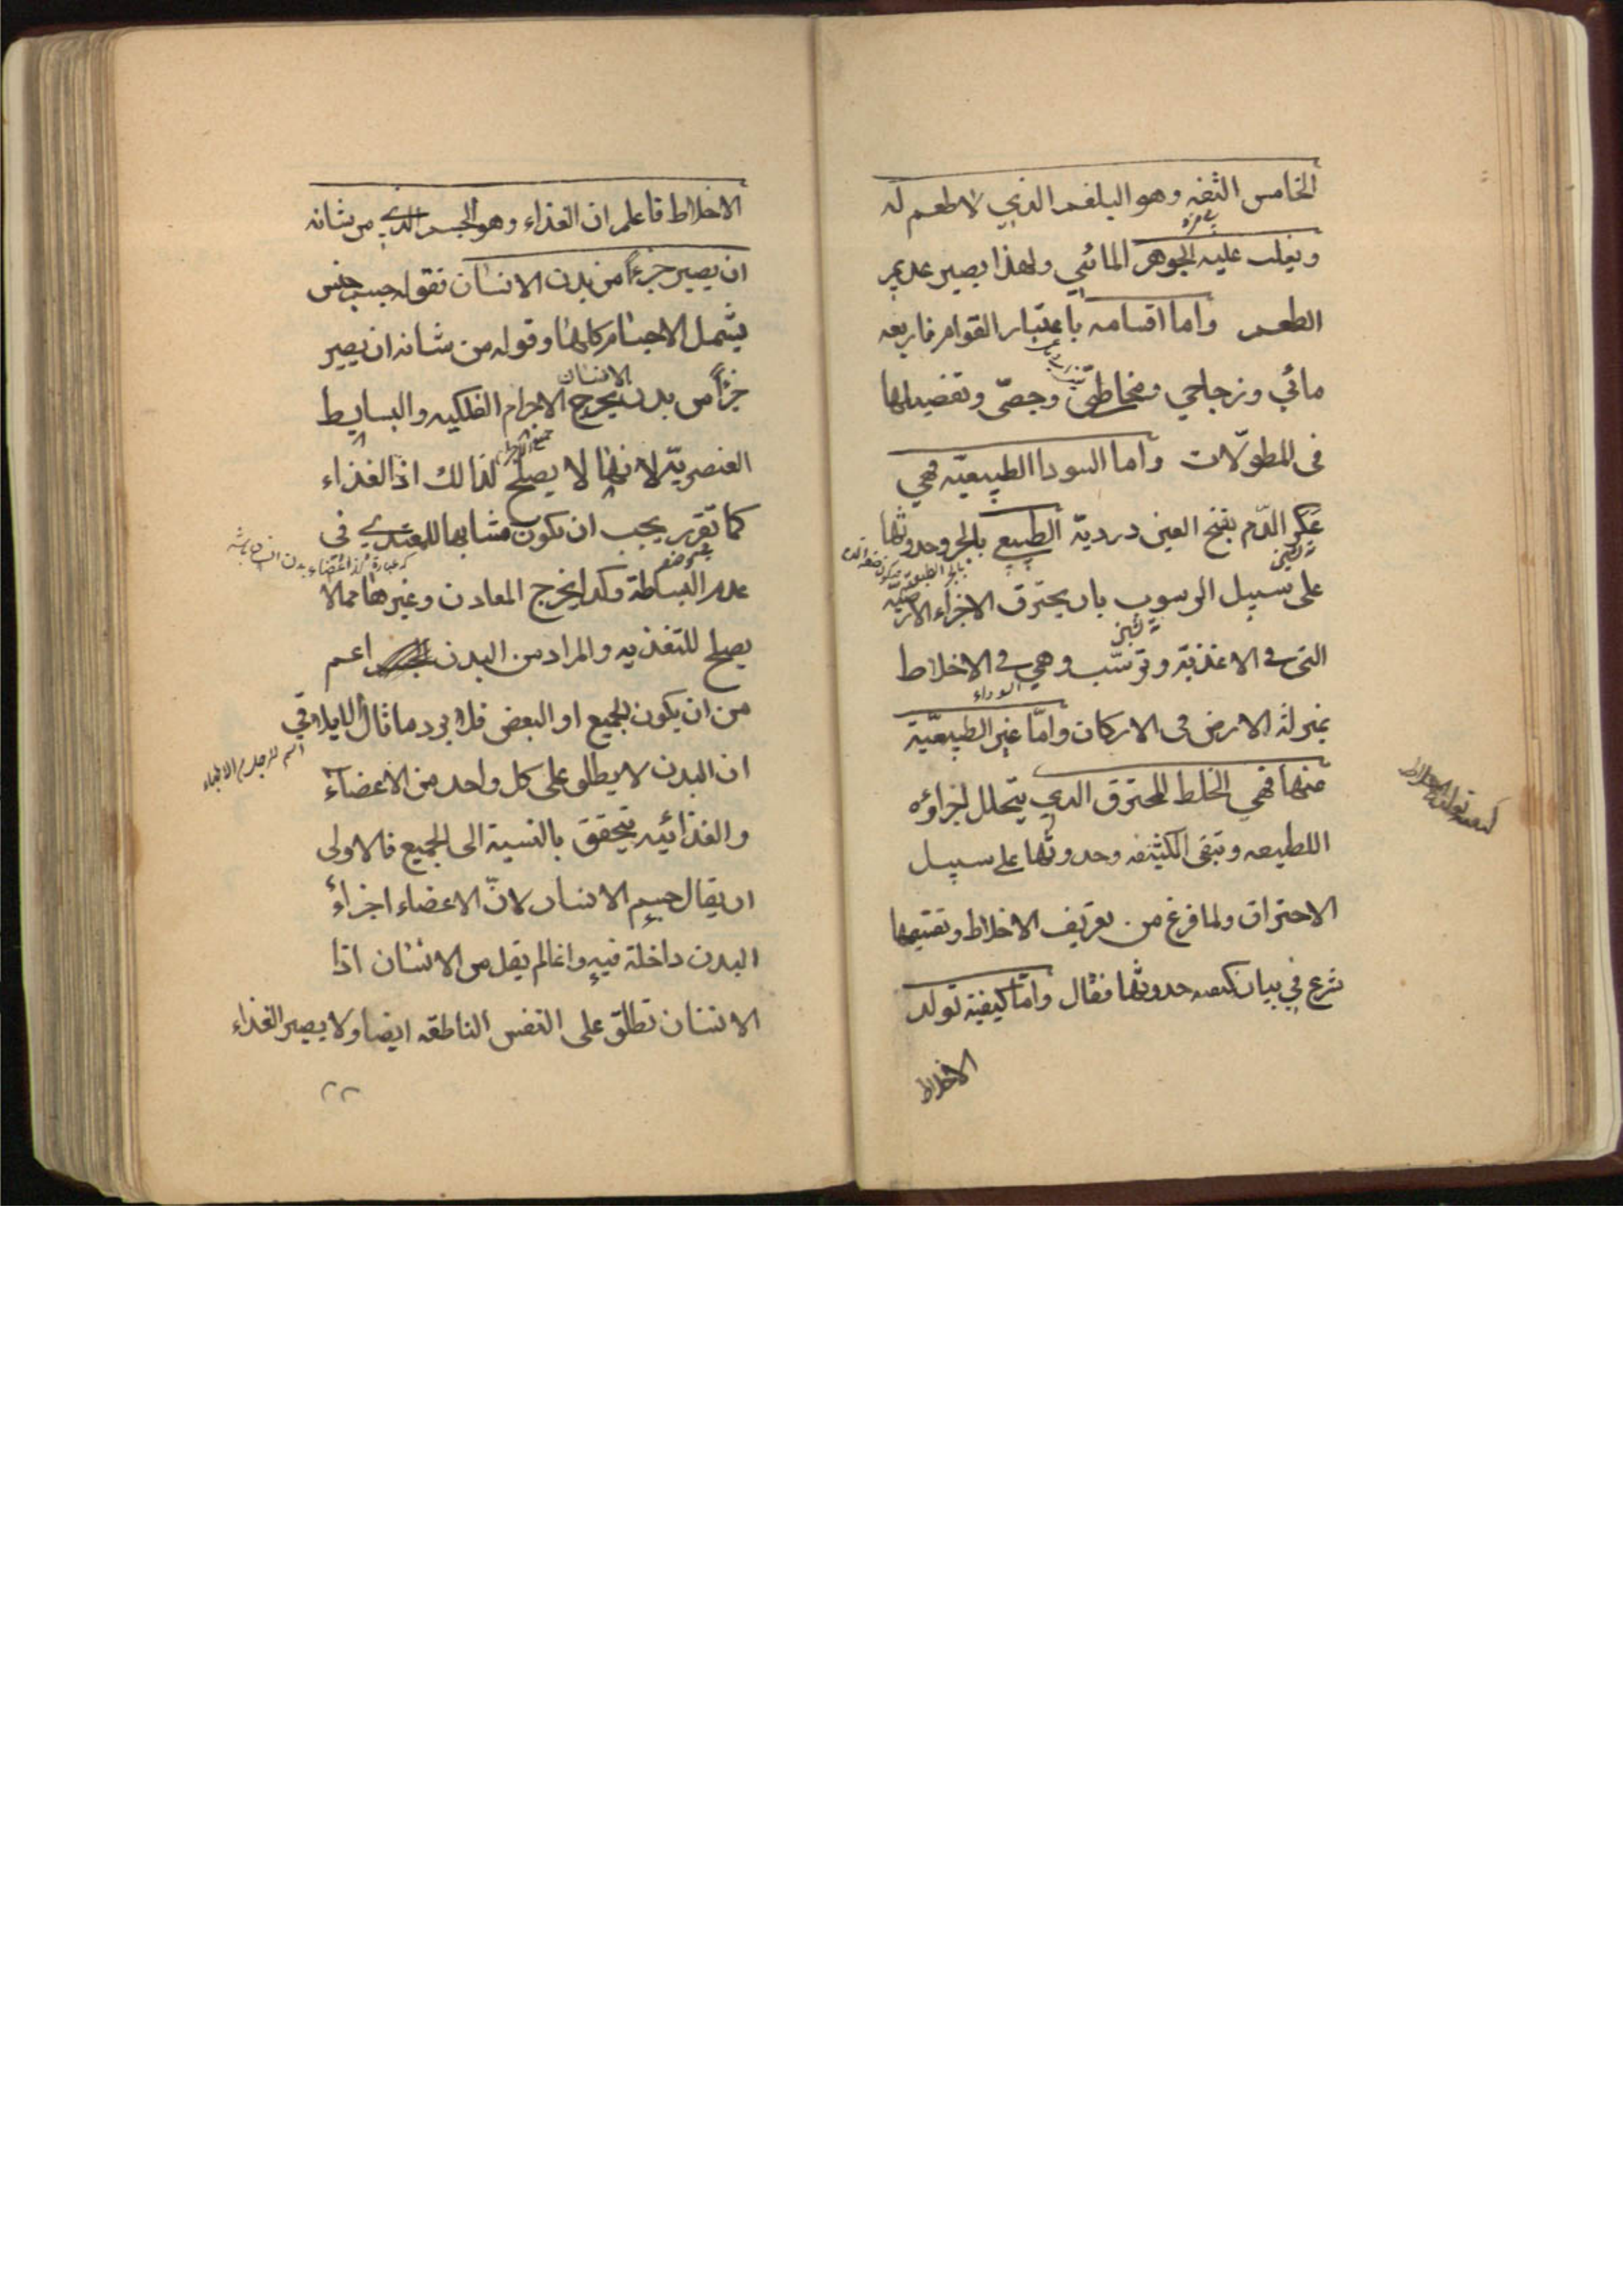 الخامس التفه وهو البلغم الذي لا طعم له
ويغلب عليه الجوهر المائي ولهذا يصير عديم
الطعم واما اقسامه باعتبار القوام فاربعه
مائي وزجاجي ومخاطي وجصّي وتفصيلها
فى المطوّلات واما السودا الطبيعيّه فهي
عَكَر الدّم بفتح العين درديّة الطبيعي بالجر وحدوثها
على سبيل الرسوب بان يحترق الاجزاء الارضيّة
التى فى الاغذيّة وترسّب وهي فى الاخلاط
بمنزلة الارض فى الاركان وامّا غير الطبيعّيّة
السوداء
منها فهي الخلط المحترق الذي يتحلل اجزاؤه
اللطيفه وتبقى الكثيفه وحدوثها على سبيل
الاحتراق ولما فرغ من تعريف الاخلاط وتقسيمها
شرع في بيان كيفيه حدوثها فقال وامّا كيفية تولد
الاخلاط
كيفيه تولد الاخلاط
الاخلاط فاعلم ان الغذاء وهو الجسم الذي من شانه
ان يصير جزءاً من بدن الانسان فقوله جسم جنس
يشمل الاجسام كلها وقوله من شانه ان يصير
جزأ من بدن الانسان يخرج الاجرام الفلكيه والبسايط
العنصريّة لانها لا يصلح لذالك اذ الغذاء
كما تقرر يجب ان يكون مشابها للمغتذي في
عدم البساطة وكذا يخرج المعادن وغيرها مما لا
يصلح للتغذيه والمراد من البدن اعم
من ان يكون الجميع او البعض فلا يرد ما قال الايلاقي
اسم لرجل من الاطباء
ان البدن لا يطلق على كل واحد من الاعضاء
والغذائيه يتحقق بالنسبة الى الجميع فالاولى
ان يقال جسم الانسان لانّ الاعضاء اجزاؤ
البدن داخلة فيه وانما لم يقل من الانسان اذا
الانسان تطلق على النفس الناطقه ايضا ولا يصير الغذاء
٢٢